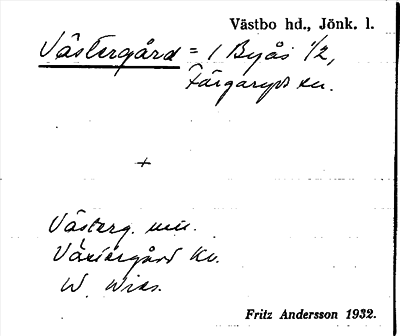 Västbo hd., Jönk. l.
Västergård = 1 Byås 1/2,
Färgaryds sn.
+
Västerg. mu.
Västergård Kv.
W.
Fritz Andersson 1932.